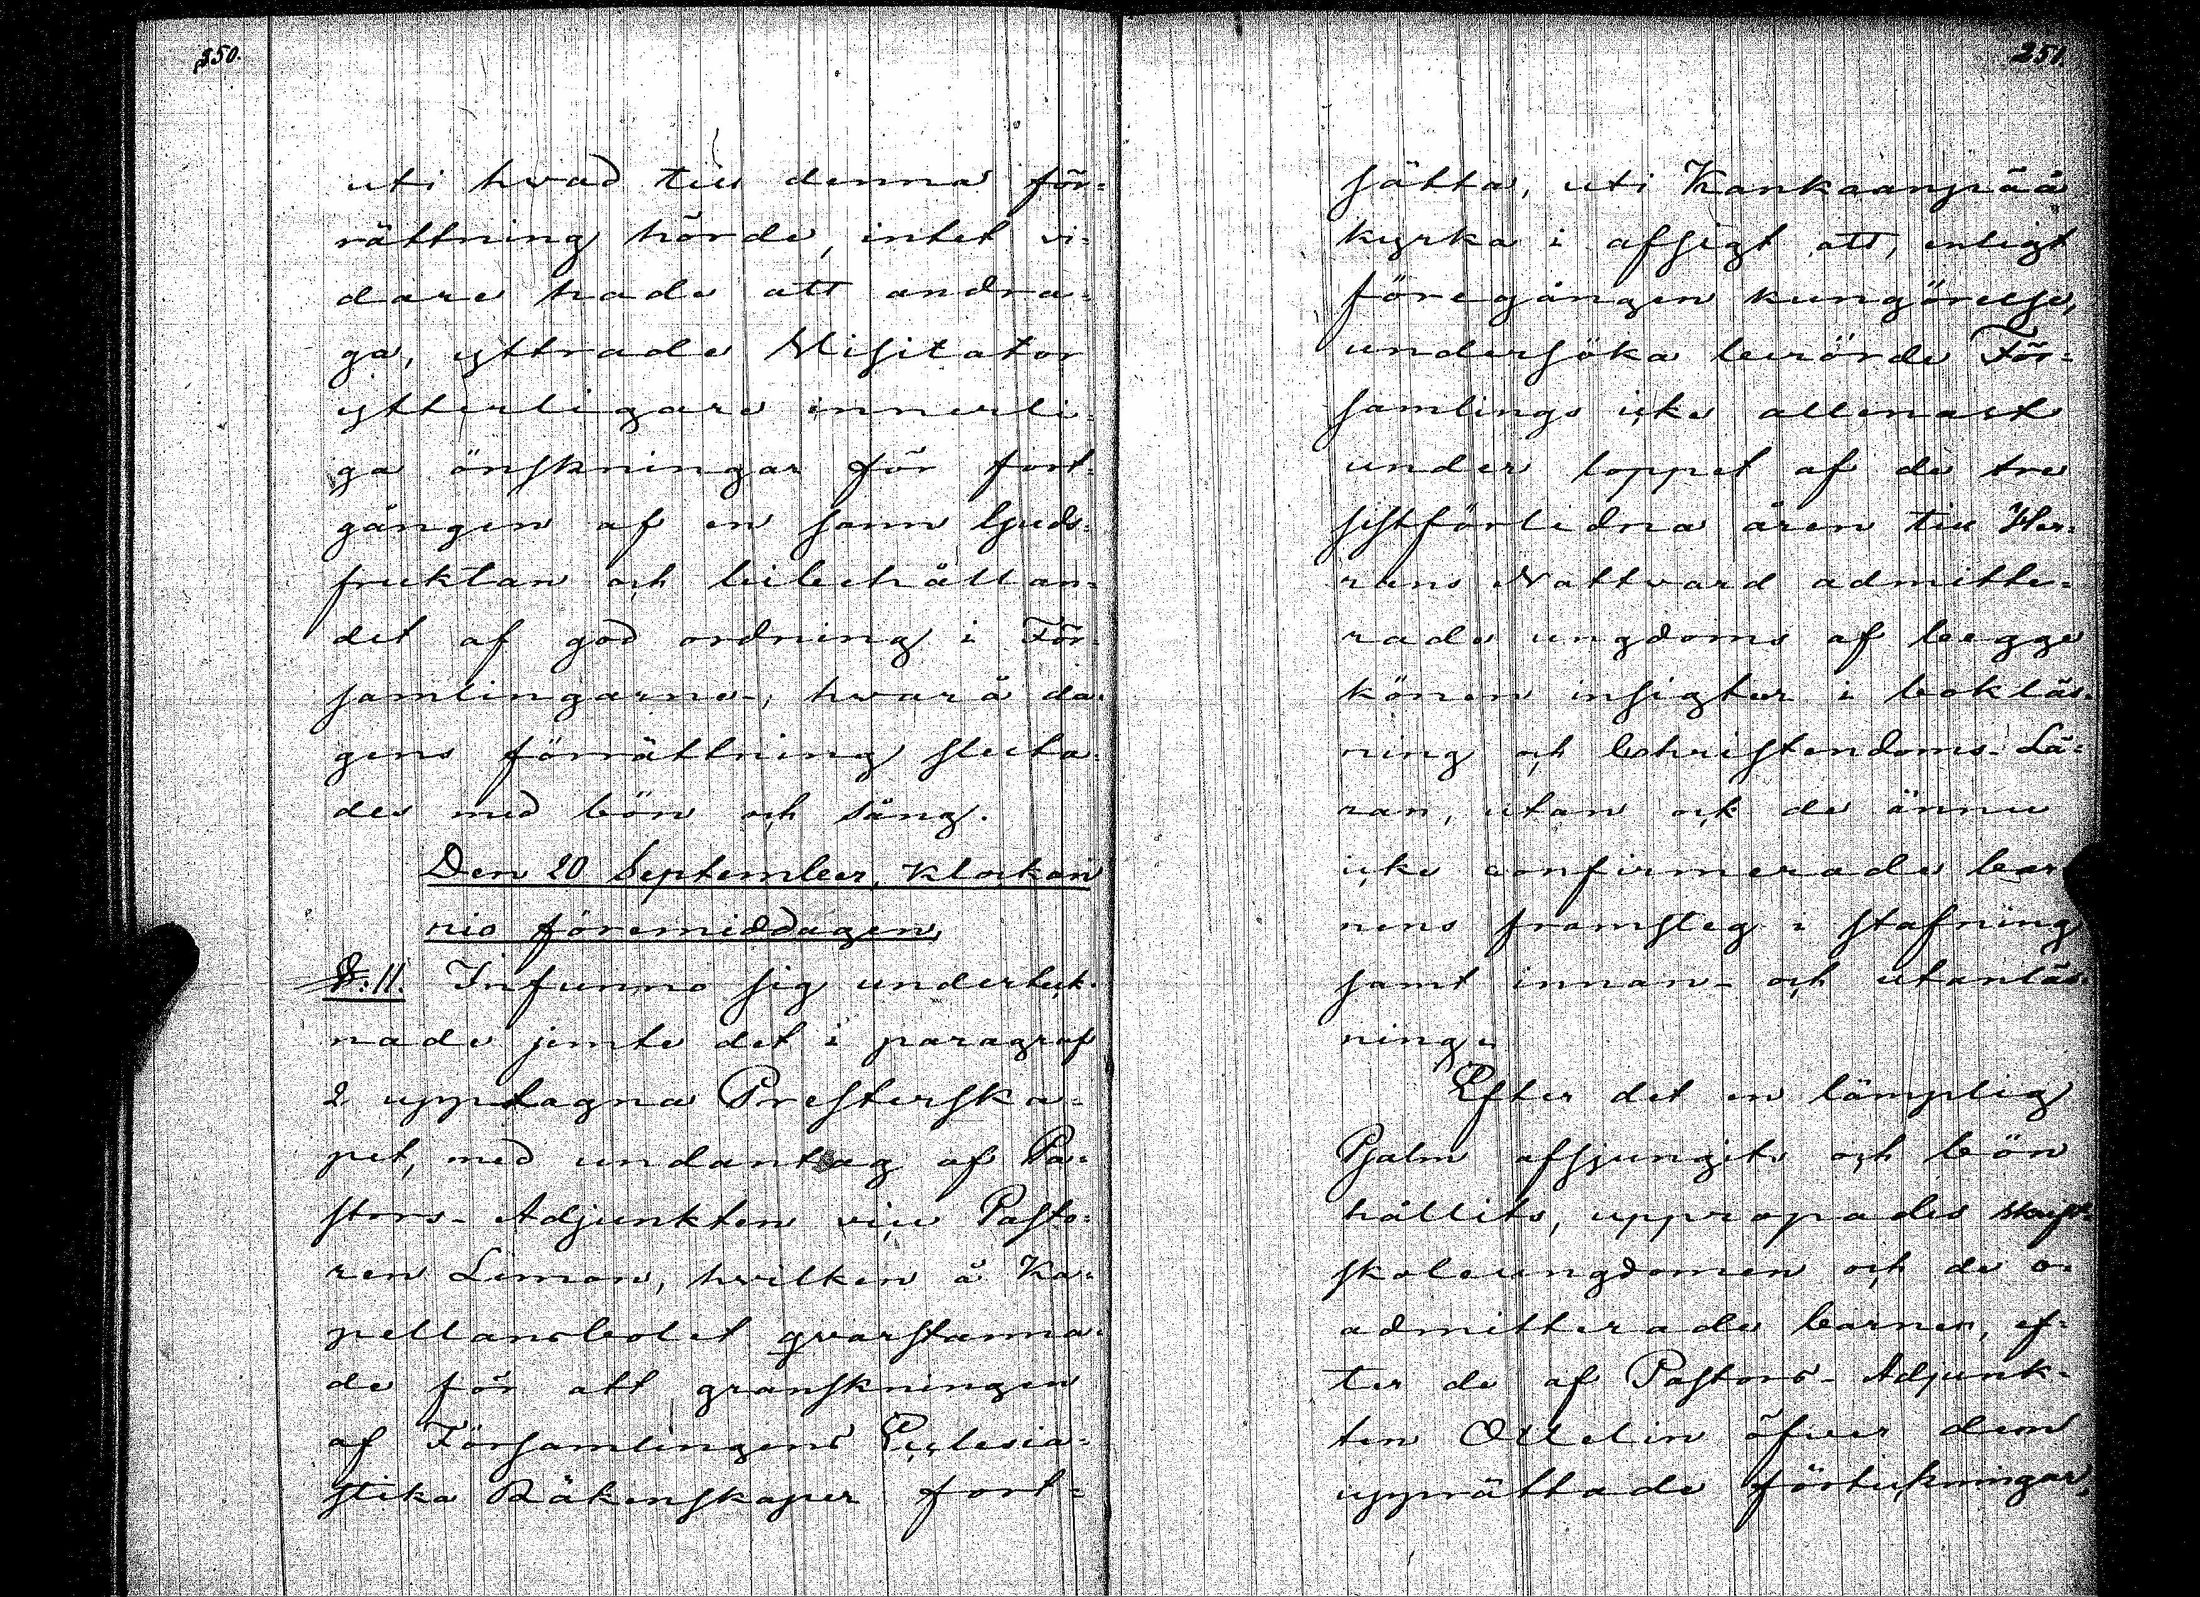 250.
uti hvad till denna för-
rättning hörde, intet vi-
dare hade att andra-
ga, yttrade Visitator
ytterligare innerli-
ga önskningar för fort-
gången af en sann Guds-
fruktan och bibehållan-
det af god ordning i För-
samlingarne, hvarå da-
gens förrättning sluta-
des med bön och sång.
Den 20 September, klockan
nio föremiddagen,
§. 11. Infunno sig underteck-
nade jemte det i paragraf
2 upptagna Presterska-
pet, med undantag af Pa-
stors-Adjunkten vice Pasto-
ren Liman, hvilken å Ka-
pellansbolet qvarstanna-
de för att granskningen
af Församlingens Ecclesia-
stika Räkenskaper fort-
251.
sätta, uti Kankaanpää
kyrka i afsigt att, enligt
föregången kungörelse,
undersöka berörde För-
samlings icke allenast
under loppet af de tre
sistförlidna åren till Her-
rans Nattvard admitte-
rade ungdoms af begge
könen insigter i bokläs-
ning och Christendoms-Lä-
ran, utan ock de ännu
icke confirmerade bar-
nens framsteg i stafning
samt innan- och utanläs-
ning.
Efter det en lämplig
Psalm afsjungits och bön
hållits, uppropades skrift-
skoleungdomen och de o-
admitterade barnen, ef-
ter de af Pastors-Adjunk-
ten Ollelin öfver dem
upprättade förteckningar,